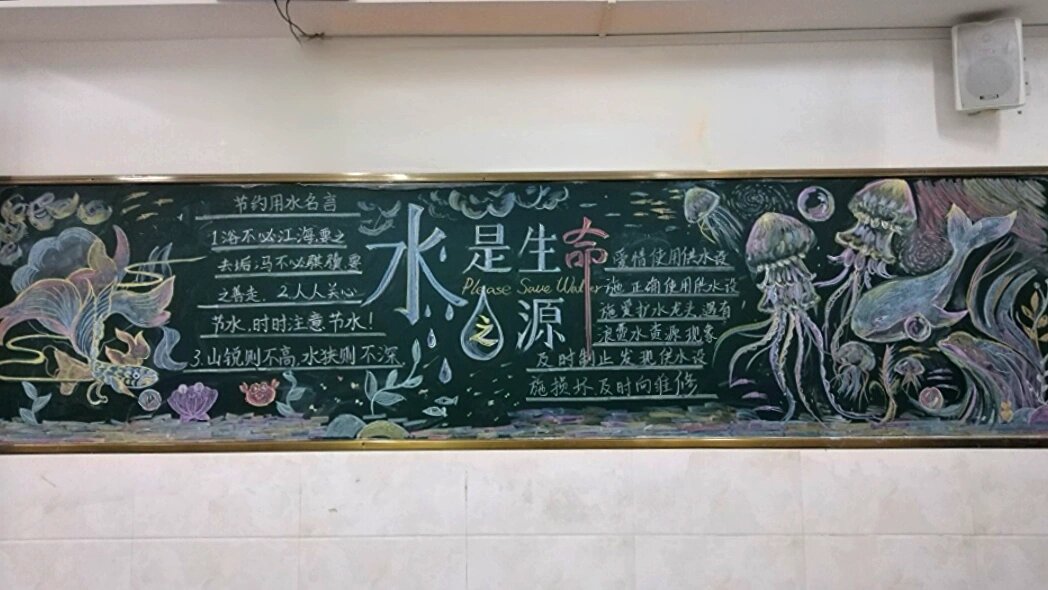 节约用水名言
1浴不必江海,要之
去垢;马不必骐骥,要
之善走. 2.人人关心
节水,时时注意节水!
3.山锐则不高,水狭则不深.
水是生命
之源
Please Save Water
爱惜使用供水设
施 正确使用供水设
施 爱护水龙头,遇有
浪费水资源现象
及时制止 发现供水设
施损坏及时向维修